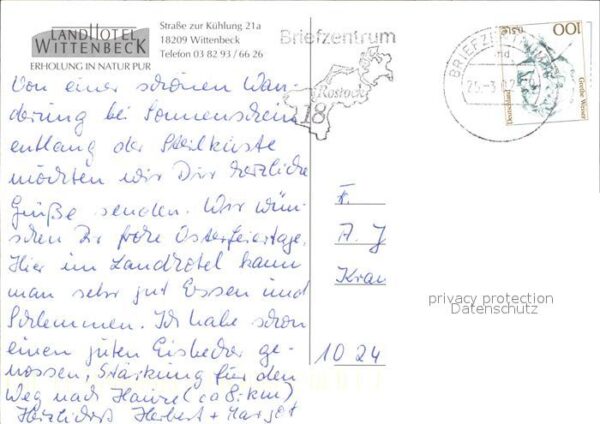 LANDHOTEL
WITTENBECK
ERHOLUNG IN NATUR PUR
Straße zur Kühlung 21a
18209 Wittenbeck
Telefon 03 82 93 / 66 26
Briefzentrum
Rostock
18
BRIEFZENTRUM
25.-3.02
100
0,51€
Deutschland
Grethe Weiser
Von einer schönen Wan-
derung bei Sonnenschein
entlang der Steilküste
möchten wir Dir herzliche
Grüße senden. Wir wün-
schen Dir frohe Osterfeiertage.
Hier im Landhotel kann
man sehr gut Essen und
Schlemmen. Ich habe schon
einen guten Eisbecher ge-
nossen, Stärkung für den
Weg nach Hause (ca 8. km)
Herzlichst Herbert + Margot
F.
A. J
Krau
10 24
privacy protection
Datenschutz